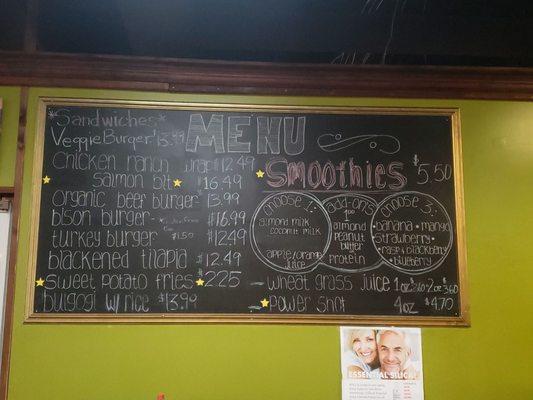 *Sandwiches*
Veggie Burger 13.99
chicken ranch wrap $12.49
salmon blt $16.49
organic beef burger 13.99
bison burger $16.99
turkey burger $1.50 $12.49
blackened tilapia $12.49
sweet potato fries $2.25
bulgogi w/ rice $13.99
MENU
Smoothies $5.50
choose 1:
almond milk
coconut milk
apple/orange
juice
add-ons
1.00
almond
peanut
butter
protein
choose 3:
banana • mango
strawberry
rasp & blackberry
blueberry
wheat grass juice 1oz 2oz
power shot 4oz $4.70
ESSENTIAL SILICA